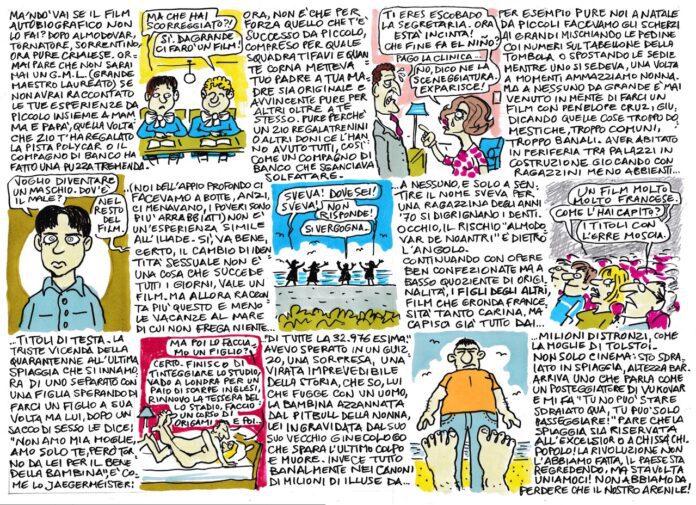 MA'NDO' VAI SE IL FILM
AUTOBIOGRAFICO NON
LO FAI? DOPO ALMODOVAR,
TORNATORE, SORRENTINO,
ORA PURE CRIALESE. OR-
MAI PARE CHE NON SARAI
MAI UN G.M.L. (GRANDE
MAESTRO LAUREATO) SE
NON AVRAI RACCONTATO
LE TUE ESPERIENZE DA
PICCOLO INSIEME A MAM
MA E PAPA', QUELLA VOLTA
CHE ZIO T'HA REGALATO
LA PISTA POLYCAR. O IL
COMPAGNO DI BANCO HA
FATTO UNA PUZZA TREMENDA.
MA CHE HAI
SCORREGGIATO?!
SI'. DA GRANDE
CI FARO' UN FILM!
ORA, NON E' CHE PER
FORZA QUELLO CHE T'E'
SUCCESSO DA PICCOLO,
COMPRESO PER QUALE
SQUADRA TIFAVI E QUAN
TE CORNA METTEVA
TUO PADRE A TUA MA-
DRE SIA ORIGINALE E
AVVINCENTE PURE PER
ALTRI OLTRE A TE
STESSO. PURE PERCHE'
UN ZIO REGALATRENINI
O ALTRI DONI CE L'HAN
NO AVUTO TUTTI, COSI'
COME UN COMPAGNO DI
BANCO CHE SGANCIAVA
SOLFATARE.
TI ERES ESCOBADO
LA SEGRETARIA. ORA
ESTA' INCINTA!
CHE FINE FA EL NIÑO?
PAGO LA CLINICA...
NO, DICO NE LA
SCENEGGIATURA
EXPARISCE!
PER ESEMPIO PURE NOI A NATALE
DA PICCOLI FACEVAMO GLI SCHERZI
AI GRANDI MISCHIANDO LE PEDINE
COI NUMERI SUL TABELLONE DELLA
TOMBOLA O SPOSTANDO LE SEDIE
MENTRE UNO SI SEDEVA, UNA VOLTA
A MOMENTI AMMAZZIAMO NONNA.
MA A NESSUNO DA GRANDE E' MAI
VENUTO IN MENTE DI FARCI UN
FILM CON PENELOPE CRUZ, GIU-
DICANDO QUELLE COSE TROPPO DO
MESTICHE, TROPPO COMUNI,
TROPPO BANALI. AVER ABITATO
IN PERIFERIA TRA PALAZZI IN
COSTRUZIONE GIOCANDO CON
RAGAZZINI MENO ABBIENTI...
VOGLIO DIVENTARE
UN MASCHIO. DOV'E'
IL MALE?
NEL
RESTO
DEL
FILM.
...(NOI DELL'APPIO PROFONDO CI
FACEVAMO A BOTTE, ANZI,
CI MENAVANO, I POVERI SONO
PIU' ARRABBIATI) NON E'
UN'ESPERIENZA SIMILE
ALL'ILIADE. SI', VA BENE,
CERTO, IL CAMBIO D'IDEN
TITA' SESSUALE NON E'
UNA COSA CHE SUCCEDE
TUTTI I GIORNI, VALE UN
FILM. MA ALLORA RACCON
TA PIU' QUESTO E MENO
LE VACANZE AL MARE
DI CUI NON FREGA NIENTE...
SVEVA! DOVE SEI!
SVEVA!
NON
RISPONDE!
SI VERGOGNA.
...A NESSUNO, E SOLO A SEN-
TIRE IL NOME SVEVA PER
UNA RAGAZZINA DEGLI ANNI
'70 SI DIGRIGNANO I DENTI.
OCCHIO, IL RISCHIO "ALMODO
VAR DE NOANTRI" E' DIETRO
L'ANGOLO.
CONTINUANDO CON OPERE
BEN CONFEZIONATE MA A
BASSO QUOZIENTE DI ORIGI
NALITA', I FIGLI DEGLI ALTRI,
FILM CHE GRONDA FRANCE,
SI'A' TANTO CARINA, MA
CAPISCI GIA' TUTTO DAI...
UN FILM MOLTO
MOLTO FRANCESE.
COME L'HAI CAPITO?
I TITOLI CON
L'ERRE MOSCIA.
...TITOLI DI TESTA. LA
TRISTE VICENDA DELLA
QUARANTENNE ALL'ULTIMA
SPIAGGIA CHE SI INNAMO,
RA DI UNO SEPARATO CON
UNA FIGLIA SPERANDO DI
FARCI UN FIGLIO A SUA
VOLTA MA LUI, DOPO UN
SACCO DI SESSO LE DICE:
"NON AMO MIA MOGLIE,
AMO SOLO TE, PERO' TOR,
NO DA LEI PER IL BENE
DELLA BAMBINA", E' CO-
ME LO JAEGERMEISTER:
MA POI LO FACCIA-
MO UN FIGLIO?
CERTO. FINISCO DI
TINTEGGIARE LO STUDIO,
VADO A LONDRA PER UN
PAIO DI SCARPE INGLESI,
RINNOVO LA TESSERA DEL
LO STADIO, FACCIO
UN CORSO DI
ORIGAMI E POI...
DI TUTTE LA 32.976 ESIMA.
AVEVO SPERATO IN UN GUIZ-
ZO, UNA SORPRESA, UNA
VIRATA IMPREVEDIBILE
DELLA STORIA, CHE SO, LUI
CHE FUGGE CON UN UOMO,
LA BAMBINA AZZANNATA
DAL PITBULL DELLA NONNA,
LEI INGRAVIDATA DAL SUO
SUO VECCHIO GINECOLOGO
CHE SPARA L'ULTIMO COLPO
E MUORE. INVECE TUTTO
BANALMENTE NEI CANONI
DI MILIONI DI ILLUSE DA...
...MILIONI DI STRONZI, COME
LA MOGLIE DI TOLSTOI.
NON SOLO CINEMA: STO SDRA,
IATO IN SPIAGGIA, ALTEZZA BAR.
ARRIVA UNO CHE PARLA COME
UN POSTEGGIATORE DI VUKOVAR
E MI FA "TU NO PUO' STARE
SDRAIATO QUA, TU PUO' SOLO
PASSEGGIARE!" PARE CHE LA
SPIAGGIA SIA RISERVATA
ALL'EXCELSIOR O A CHISSA' CHI.
POPOLO! LA RIVOLUZIONE NON
L'ABBIAMO FATTA, IL PAESE STA
REGREDENDO, MA STAVOLTA
UNIAMOCI! NON ABBIAMO DA
PERDERE CHE IL NOSTRO ARENILE!